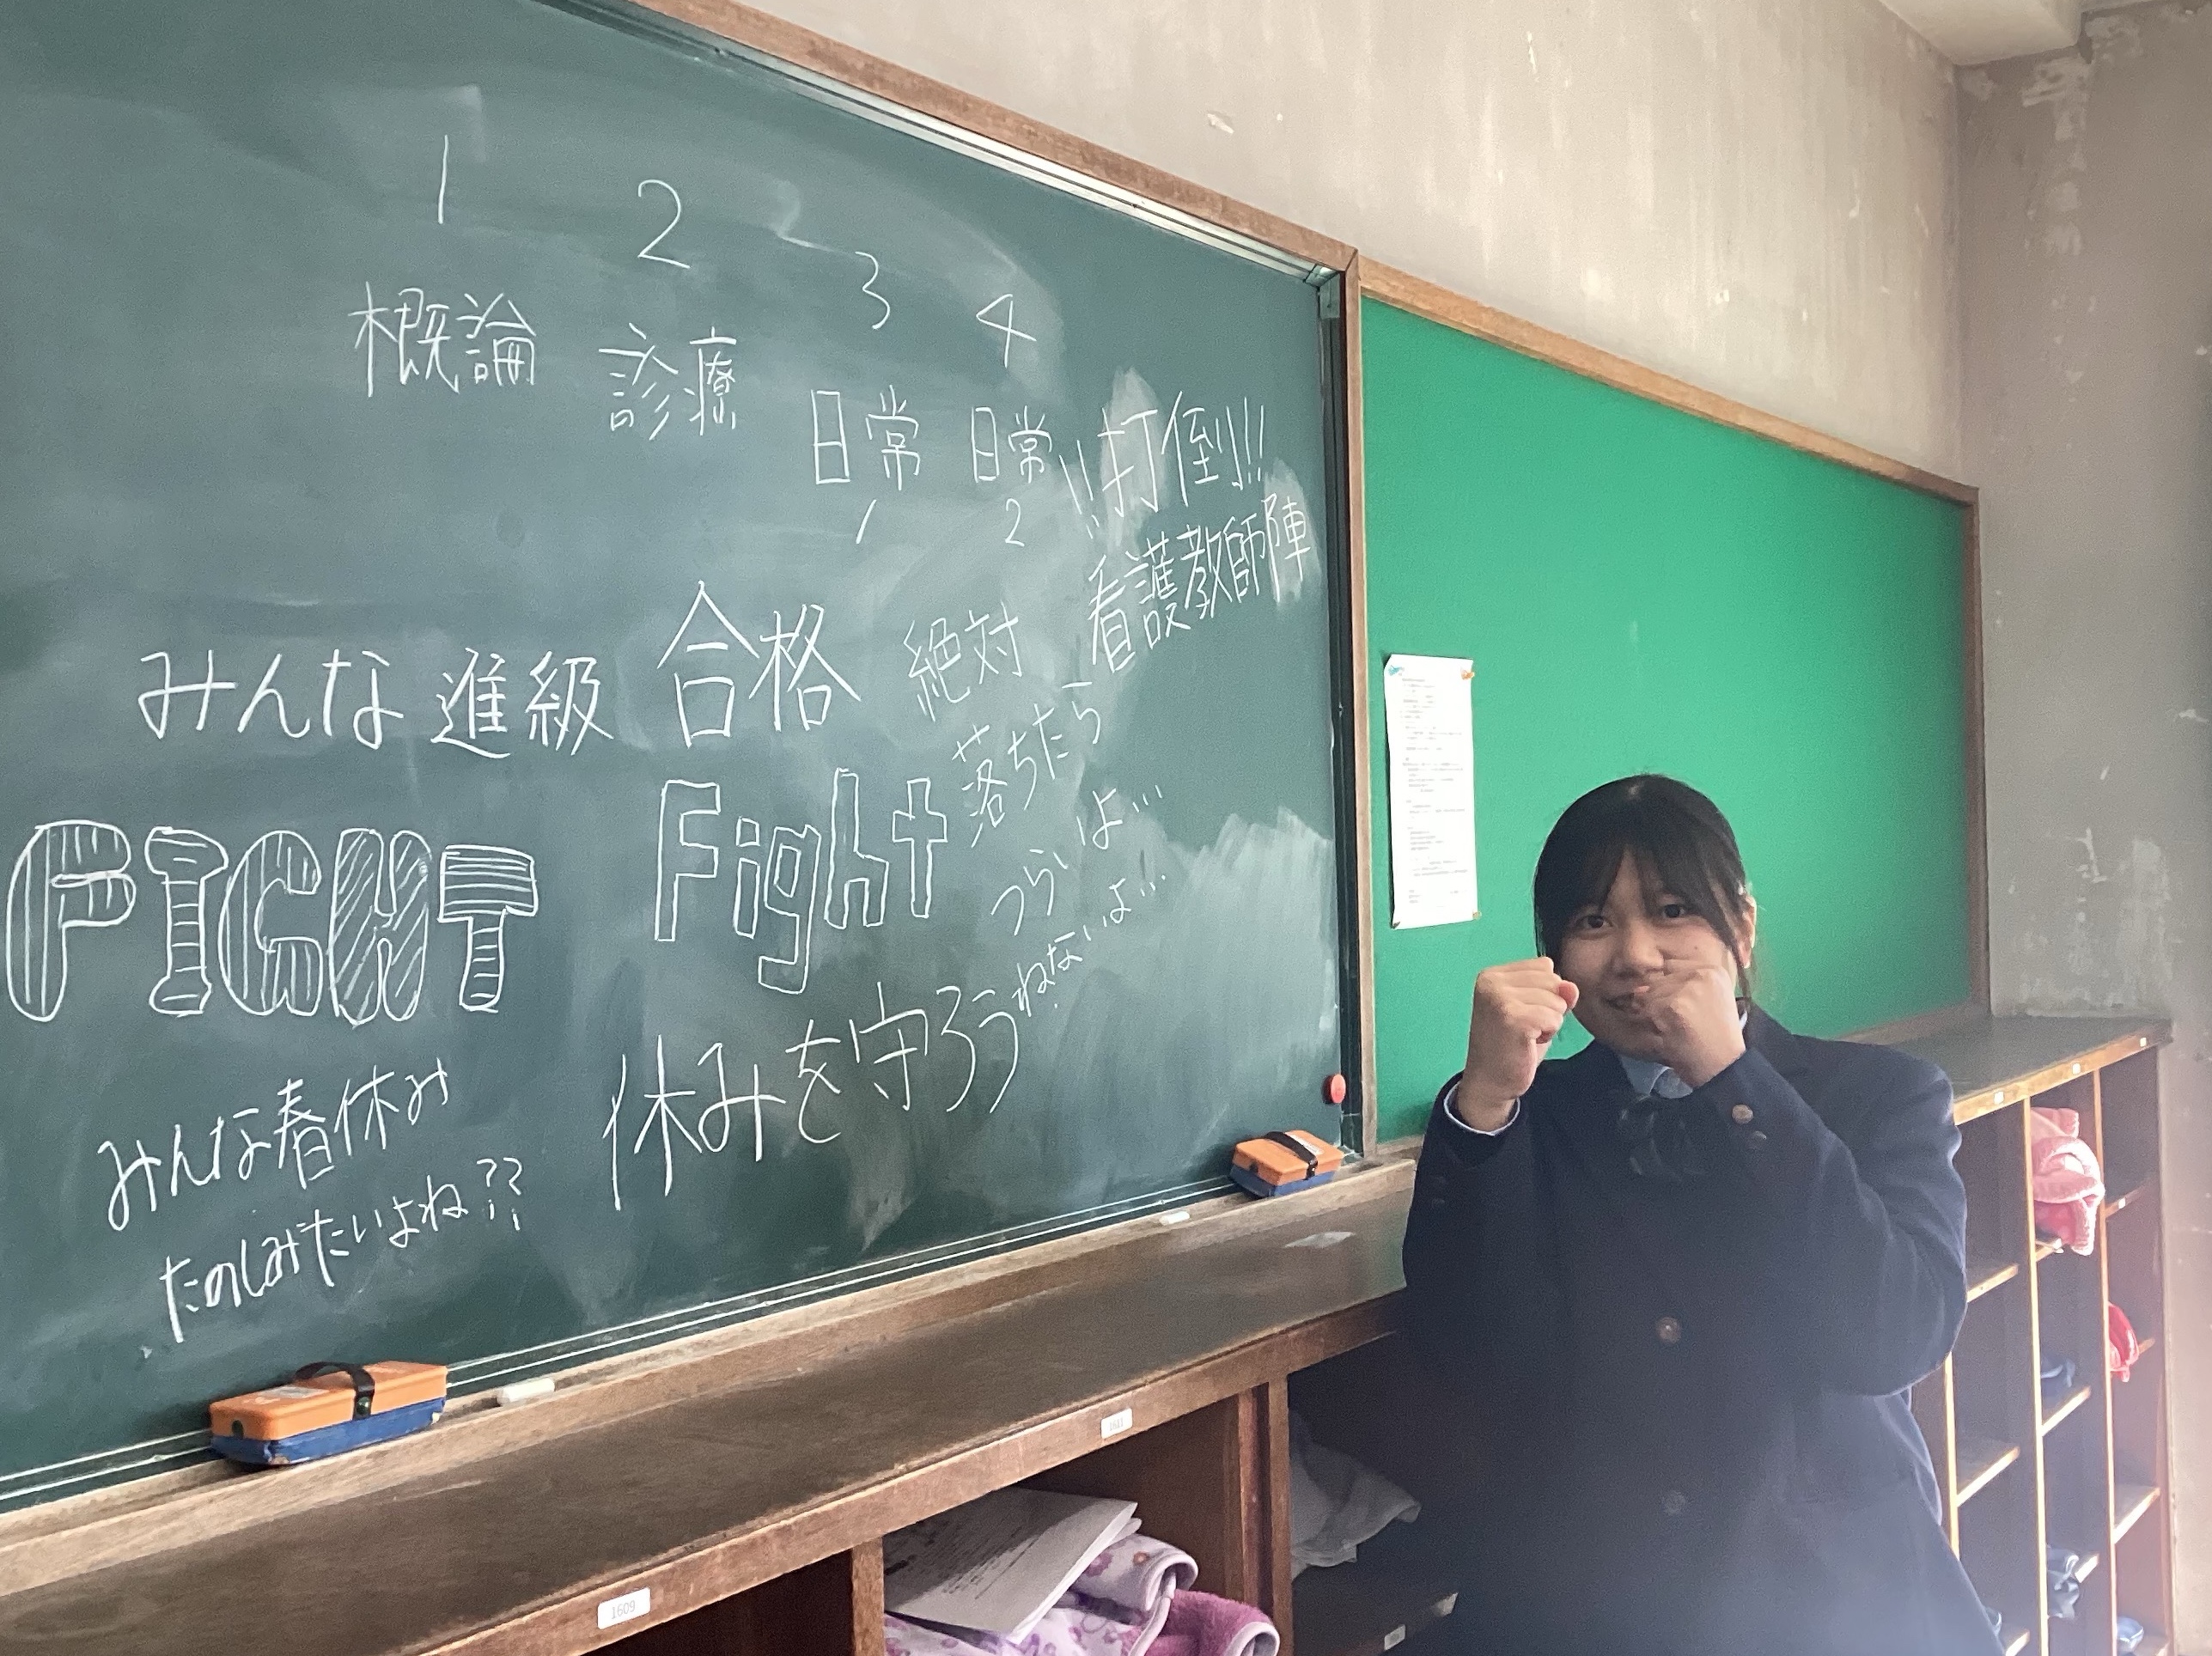 1 2 3 4
概論 診療 日常 日常
1 2
!!打倒!!
看護教師陣
みんな進級 合格 絶対
FIGHT Fight
落ちたら
つらいよ…
ねないよ…
休みを守ろう
みんな春休み
たのしみたいよね??
1609
1611